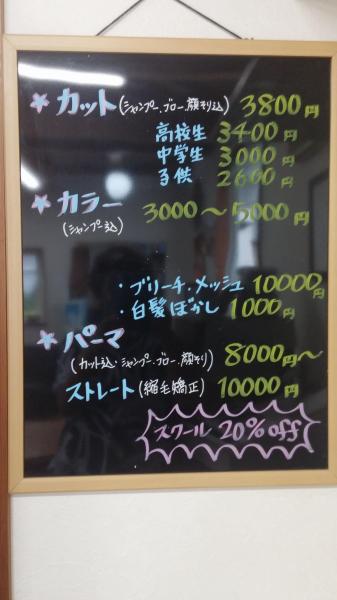 ★ カット(シャンプー、ブロー、顔そり込) 3800円
高校生 3400円
中学生 3000円
子供 2600円
★ カラー 3000〜5000円
(シャンプー込)
・ブリーチ、メッシュ 10000円
・白髪ぼかし 1000円
★ パーマ
(カット込・シャンプー、ブロー、顔そり) 8000円〜
ストレート(縮毛矯正) 10000円
スクール 20%off